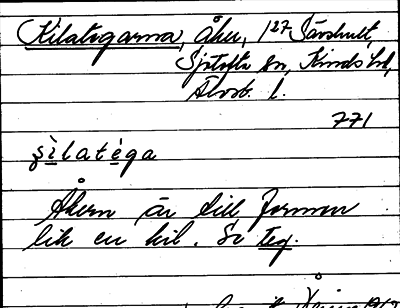 Kilategarna, åker, 1/27 Sävshult,
Sjötofta sn, Kinds hd,
Älvsb. l.
771
şìlatèga
Åkern är till formen
lik en kil. Se teg.